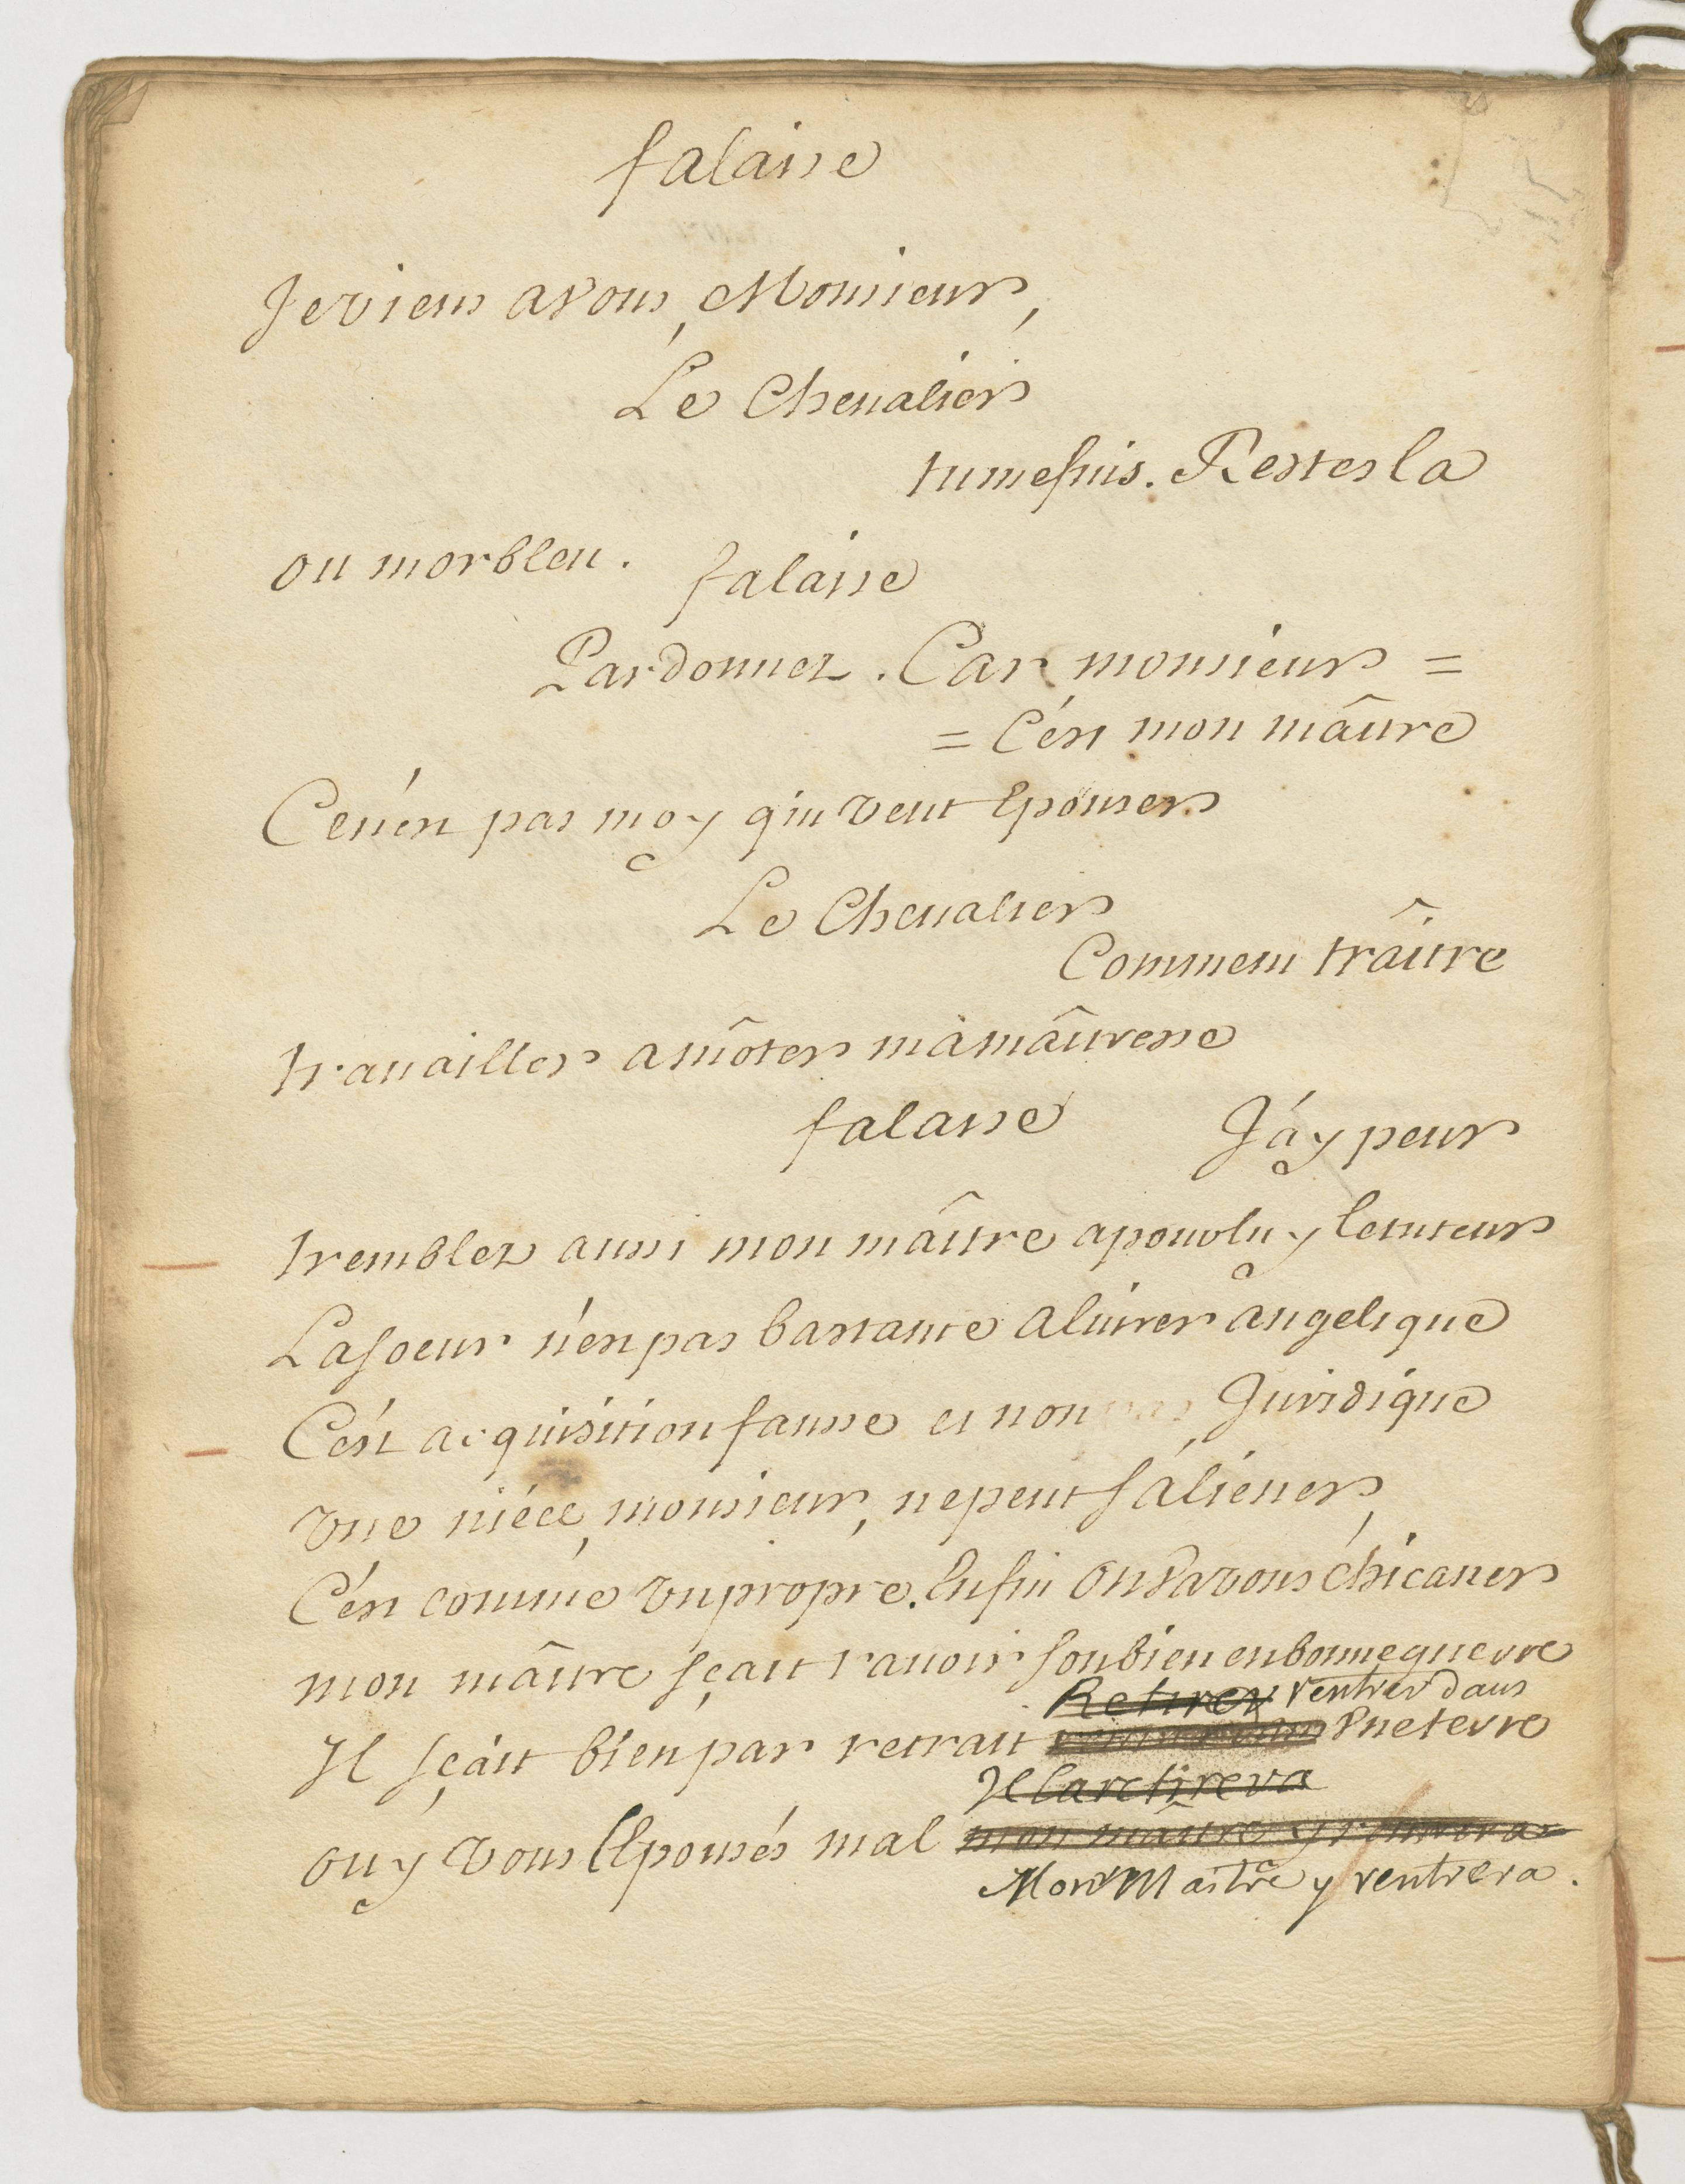 falaise
Je viens a vous, Monsieur,
Le Chevalier
tu me fuis. Restes la
ou morbleu.
falaise
Pardonnez. Car monsieur =
= C'est mon maître
Ce n'est pas moy qui veut Epouser
Le Chevalier
Comment traître
travailler a m'ôter ma maîtresse
falaise
J'ay peur
tremblez aussi mon maître a pouvoir le tuteur
La soeur n'est pas bastante a livrer angelique
C'est acquisition fausse et non Juridique
une niéce, monsieur, ne peut s'aliéner,
C'est comme un propre. Enfin on va vous chicaner
mon maître sçait r'avoir son bien en bonne guerre
Retirer rentrer dans
Il sçait bien par retrait une terre
Il la retirera
ouy vous Epousés mal mon maître y rentrera
Mon Maitre y rentrera.